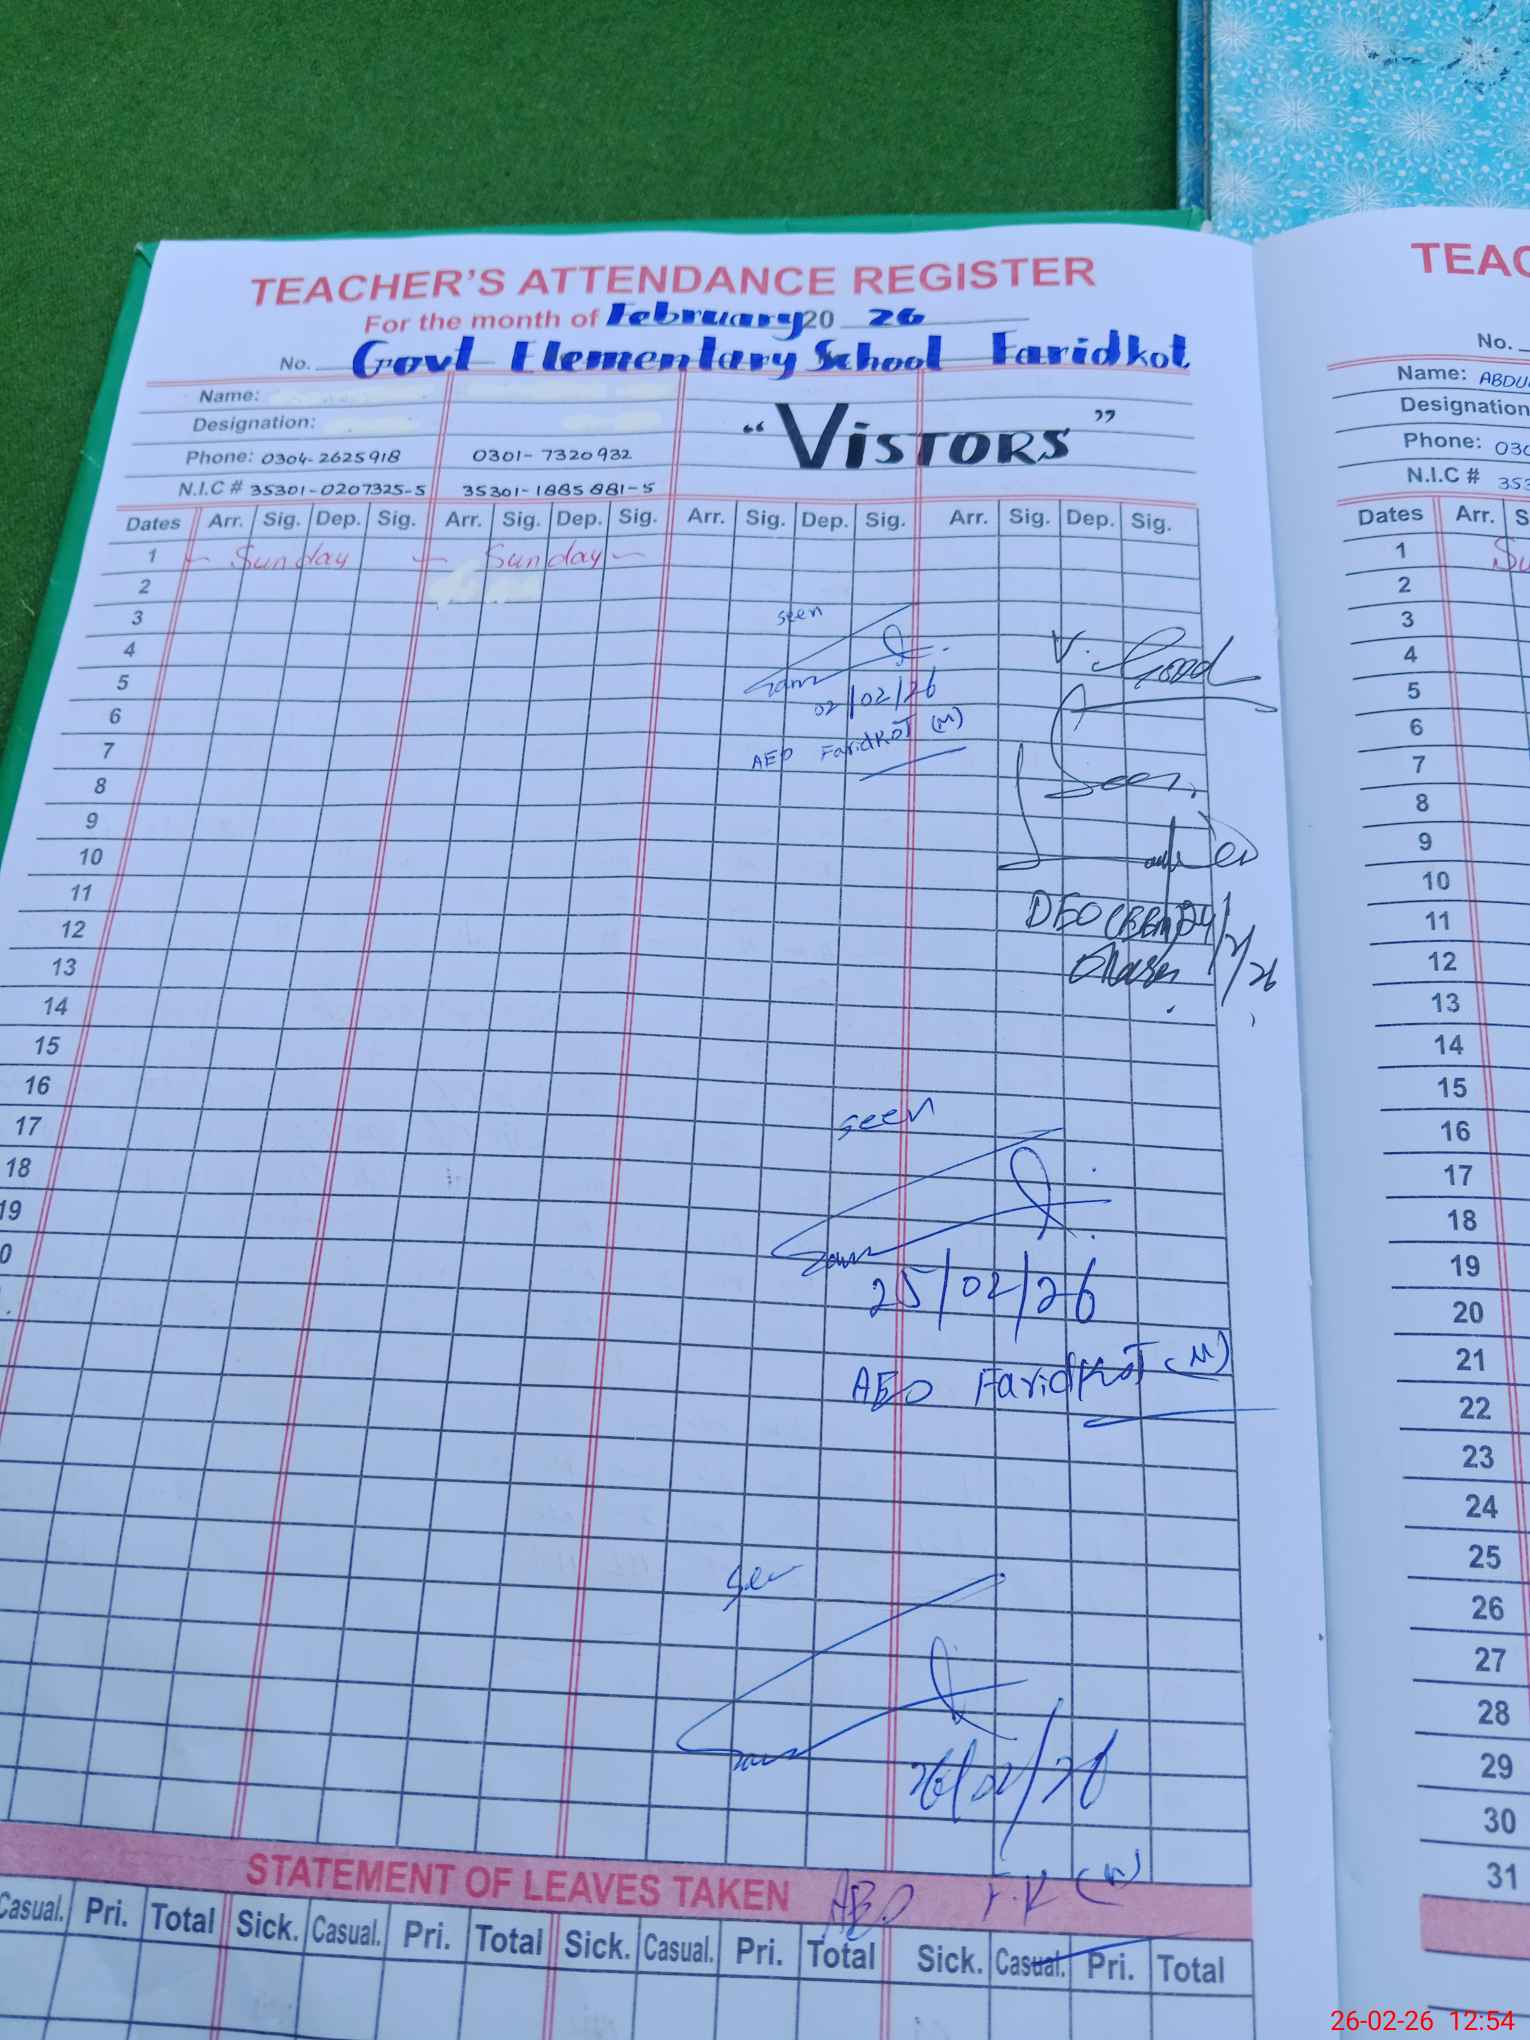 TEACHER'S ATTENDANCE REGISTER
For the month of February 20 26
No. Govt Elementary School Faridkot
Name:
Designation:
"VISTORS"
Phone: 0304-2625918 0301-7320932
N.I.C # 35301-0207325-5 35301-1885881-5
Dates Arr. Sig. Dep. Sig. Arr. Sig. Dep. Sig. Arr. Sig. Dep. Sig. Arr. Sig. Dep. Sig.
1 Sunday Sunday
2
3 seen
4 V. Good
5 02/02/26
6
7 AEO FaridKOT (M)
8 Seen
9
10
11 DEO
12
13
14
15
16
17 seen
18
19
0
25/02/26
AEO FaridKOT (M)
26/02/26
AEO F.K (M)
STATEMENT OF LEAVES TAKEN
Casual. Pri. Total Sick. Casual. Pri. Total Sick. Casual. Pri. Total Sick. Casual. Pri. Total
TEAC
No.
Name: ABDU
Designation
Phone: 030
N.I.C # 353
Dates Arr. S
1 Su
2
3
4
5
6
7
8
9
10
11
12
13
14
15
16
17
18
19
20
21
22
23
24
25
26
27
28
29
30
31
26-02-26 12:54